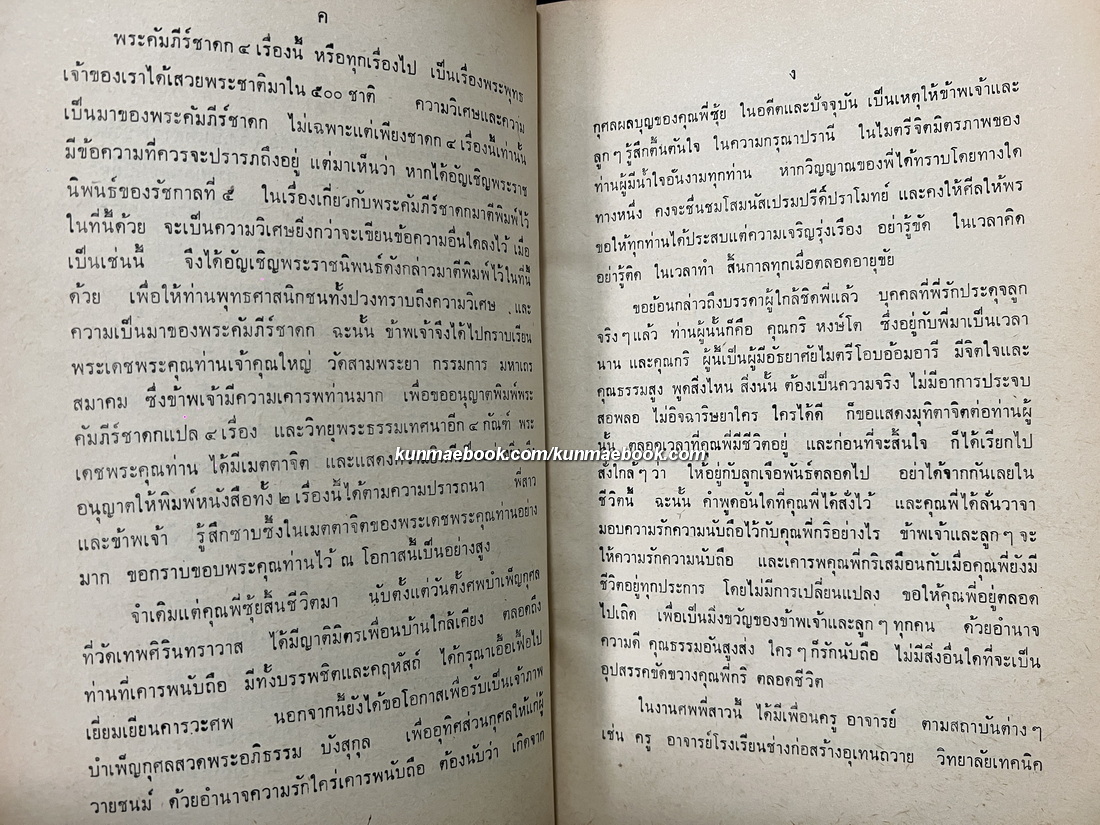 ค
พระคัมภีร์ชาดก ๔ เรื่องนี้ หรือทุกเรื่องไป เป็นเรื่องพระพุทธ
เจ้าของเราได้เสวยพระชาติมาใน ๕๐๐ ชาติ ความวิเศษและความ
เป็นมาของพระคัมภีร์ชาดก ไม่เฉพาะแต่เพียงชาดก ๔ เรื่องนี้เท่านั้น
มีข้อความที่ควรจะปรารภถึงอยู่ แต่มาเห็นว่า หากได้อัญเชิญพระราช
นิพนธ์ของรัชกาลที่ ๕ ในเรื่องเกี่ยวกับพระคัมภีร์ชาดกมาตีพิมพ์ไว้
ในที่นี้ด้วย จะเป็นความวิเศษยิ่งกว่าจะเขียนข้อความอื่นใดลงไว้ เมื่อ
เป็นเช่นนี้ จึงได้อัญเชิญพระราชนิพนธ์ดังกล่าวมาตีพิมพ์ไว้ในที่นี้
ด้วย เพื่อให้ท่านพุทธศาสนิกชนทั้งปวงทราบถึงความวิเศษ และ
ความเป็นมาของพระคัมภีร์ชาดก ฉะนั้น ข้าพเจ้าจึงได้ไปกราบเรียน
พระเดชพระคุณท่านเจ้าคุณใหญ่ วัดสามพระยา กรรมการ มหาเถร
สมาคม ซึ่งข้าพเจ้ามีความเคารพท่านมาก เพื่อขออนุญาตพิมพ์พระ
คัมภีร์ชาดกแปล ๔ เรื่อง และวิทยุพระธรรมเทศนาอีก ๔ กัณฑ์ พระ
เดชพระคุณท่าน ได้มีเมตตาจิต และแสดงความยินดีเป็นอย่างยิ่งที่
อนุญาตให้พิมพ์หนังสือทั้ง ๒ เรื่องนี้ได้ตามความปรารถนา พี่สาว
และข้าพเจ้า รู้สึกซาบซึ้งในเมตตาจิตของพระเดชพระคุณท่านอย่าง
มาก ขอกราบขอบพระคุณท่านไว้ ณ โอกาสนี้เป็นอย่างสูง
จำเดิมแต่คุณพี่ซุ้ยสิ้นชีวิตมา นับตั้งแต่วันตั้งศพบำเพ็ญกุศล
ที่วัดเทพศิรินทราวาส ได้มีญาติมิตรเพื่อนบ้านใกล้เคียง ตลอดถึง
ท่านที่เคารพนับถือ มีทั้งบรรพชิตและคฤหัสถ์ ได้กรุณาเอื้อเฟื้อไป
เยี่ยมเยียนคารวะศพ นอกจากนี้ยังได้ขอโอกาสเพื่อรับเป็นเจ้าภาพ
บำเพ็ญกุศลสวดพระอภิธรรม บังสุกุล เพื่ออุทิศส่วนกุศลให้แก่ผู้
วายชนม์ ด้วยอำนาจความรักใคร่เคารพนับถือ ต้องนับว่า เกิดจาก
ง
กุศลผลบุญของคุณพี่ซุ้ย ในอดีตและปัจจุบัน เป็นเหตุให้ข้าพเจ้าและ
ลูก ๆ รู้สึกตื้นตันใจ ในความกรุณาปรานี ในไมตรีจิตมิตรภาพของ
ท่านผู้มีน้ำใจอันงามทุกท่าน หากวิญญาณของพี่ได้ทราบโดยทางใด
ทางหนึ่ง คงจะชื่นชมโสมนัสเปรมปรีดิ์ปราโมทย์ และคงให้ศีลให้พร
ขอให้ทุกท่านได้ประสบแต่ความเจริญรุ่งเรือง อย่ารู้ขัด ในเวลาคิด
อย่ารู้ติด ในเวลาทำ สิ้นกาลทุกเมื่อตลอดอายุขัย
ขอย้อนกล่าวถึงบรรดาผู้ใกล้ชิดพี่แล้ว บุคคลที่พี่รักประดุจลูก
จริง ๆ แล้ว ท่านผู้นั้นก็คือ คุณกริ หงษ์โต ซึ่งอยู่กับพี่มาเป็นเวลา
นาน และคุณกริ ผู้นี้เป็นผู้มีอัธยาศัยไมตรีโอบอ้อมอารี มีจิตใจและ
คุณธรรมสูง พูดสิ่งไหน สิ่งนั้น ต้องเป็นความจริง ไม่มีอาการประจบ
สอพลอ ไม่อิจฉาริษยาใคร ใครได้ดี ก็ขอแสดงมุทิตาจิตต่อท่านผู้
นั้น ตลอดเวลาที่คุณพี่มีชีวิตอยู่ และก่อนที่จะสิ้นใจ ก็ได้เรียกไป
สั่งใกล้ ๆ ว่า ให้อยู่กับลูกเจือพันธ์ตลอดไป อย่าได้จากกันเลยใน
ชีวิตนี้ ฉะนั้น คำพูดอันใดที่คุณพี่ได้สั่งไว้ และคุณพี่ได้ลั่นวาจา
มอบความรักความนับถือไว้กับคุณพี่กริอย่างไร ข้าพเจ้าและลูก ๆ จะ
ให้ความรักความนับถือ และเคารพคุณพี่กริเสมือนกับเมื่อคุณพี่ยังมี
ชีวิตอยู่ทุกประการ โดยไม่มีการเปลี่ยนแปลง ขอให้คุณพี่อยู่ตลอด
ไปเถิด เพื่อเป็นมิ่งขวัญของข้าพเจ้าและลูก ๆ ทุกคน ด้วยอำนาจ
ความดี คุณธรรมอันสูงส่ง ใคร ๆ ก็รักนับถือ ไม่มีสิ่งอื่นใดที่จะเป็น
อุปสรรคขัดขวางคุณพี่กริ ตลอดชีวิต
ในงานศพพี่สาวนี้ ได้มีเพื่อนครู อาจารย์ ตามสถาบันต่าง ๆ
เช่น ครู อาจารย์โรงเรียนช่างก่อสร้างอุเทนถวาย วิทยาลัยเทคนิค
kunmaebook.com/kunmaebook.com